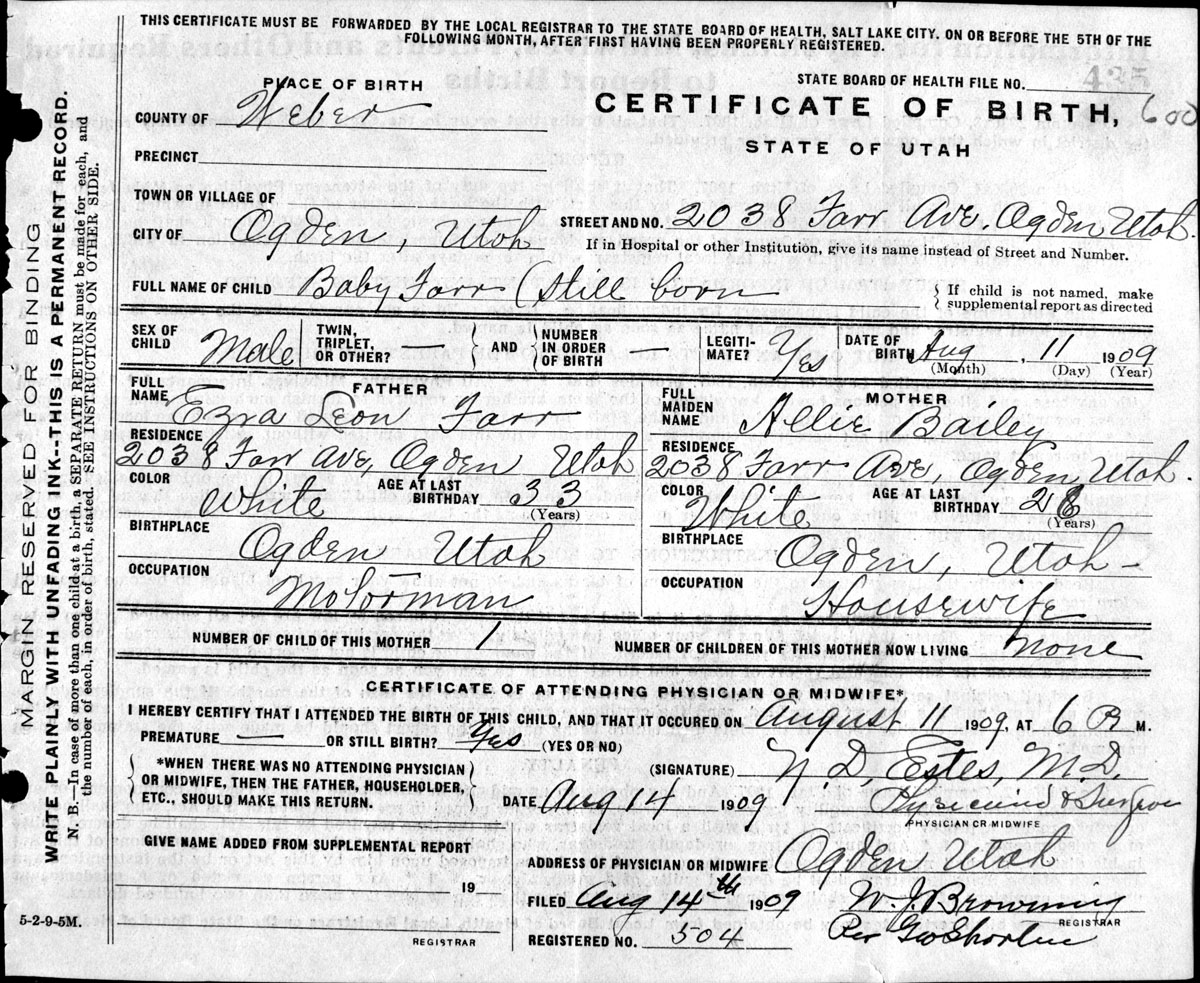 THIS CERTIFICATE MUST BE FORWARDED BY THE LOCAL REGISTRAR TO THE STATE BOARD OF HEALTH, SALT LAKE CITY. ON OR BEFORE THE 5TH OF THE
FOLLOWING MONTH, AFTER FIRST HAVING BEEN PROPERLY REGISTERED.
PLACE OF BIRTH
STATE BOARD OF HEALTH FILE NO.
435
COUNTY OF Weber
CERTIFICATE OF BIRTH, 600
STATE OF UTAH
PRECINCT
TOWN OR VILLAGE OF
CITY OF Ogden, Utah
STREET AND NO. 2038 Farr Ave. Ogden Utah.
If in Hospital or other Institution, give its name instead of Street and Number.
FULL NAME OF CHILD Baby Farr (Still born
If child is not named, make
supplemental report as directed
SEX OF CHILD Male
TWIN, TRIPLET, OR OTHER? —
AND NUMBER IN ORDER OF BIRTH —
LEGITIMATE? Yes
DATE OF BIRTH Aug, 11 1909
(Month) (Day) (Year)
FATHER
FULL NAME Ezra Leon Farr
RESIDENCE
2038 Farr Ave, Ogden Utah
COLOR White
AGE AT LAST BIRTHDAY 33
(Years)
BIRTHPLACE
Ogden Utah
OCCUPATION
Motorman
MOTHER
FULL MAIDEN NAME Allie Bailey
RESIDENCE
2038 Farr Ave, Ogden, Utah.
COLOR White
AGE AT LAST BIRTHDAY
(Years)
BIRTHPLACE
Ogden, Utah -
OCCUPATION
Housewife
NUMBER OF CHILD OF THIS MOTHER 1
NUMBER OF CHILDREN OF THIS MOTHER NOW LIVING none
CERTIFICATE OF ATTENDING PHYSICIAN OR MIDWIFE*
I HEREBY CERTIFY THAT I ATTENDED THE BIRTH OF THIS CHILD, AND THAT IT OCCURED ON August 11 1909, AT 6 P M.
PREMATURE — OR STILL BIRTH? Yes (YES OR NO)
*WHEN THERE WAS NO ATTENDING PHYSICIAN
OR MIDWIFE, THEN THE FATHER, HOUSEHOLDER,
ETC., SHOULD MAKE THIS RETURN.
(SIGNATURE) Estes, M.D.
DATE Aug 14 1909
Physician & Surgeon
PHYSICIAN OR MIDWIFE
GIVE NAME ADDED FROM SUPPLEMENTAL REPORT
19
REGISTRAR
ADDRESS OF PHYSICIAN OR MIDWIFE Ogden Utah
FILED Aug 14th 1909
W. J. Browning
REGISTRAR
REGISTERED NO. 504
Per Geo
5-2-9-5M.
MARGIN RESERVED FOR BINDING
WRITE PLAINLY WITH UNFADING INK--THIS IS A PERMANENT RECORD.
N. B.—In case of more than one child at a birth, a SEPARATE RETURN must be made for each, and
the number of each, in order of birth, stated. SEE INSTRUCTIONS ON OTHER SIDE.